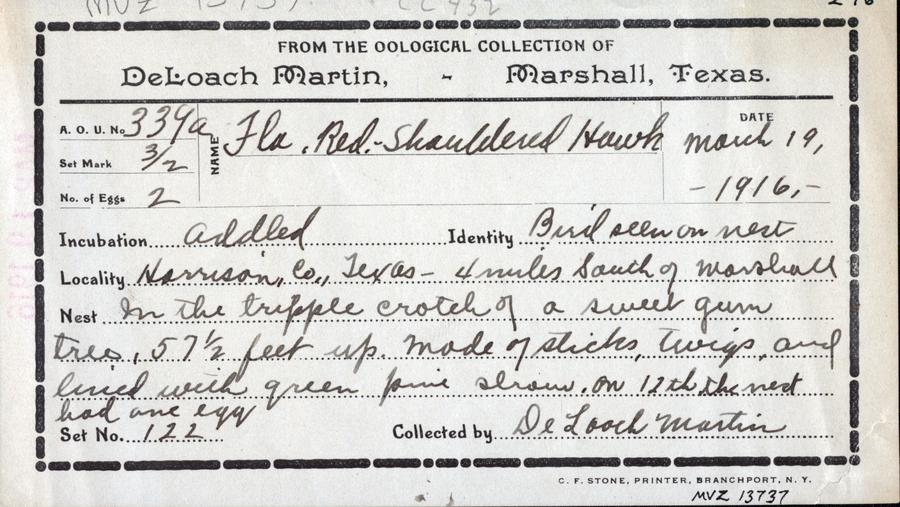 MVZ 13737. CC 932
FROM THE OOLOGICAL COLLECTION OF
DeLoach Martin, - Marshall, Texas.
A. O. U. No 339a NAME Fla. Red-Shouldered Hawk DATE March 19,
Set Mark 3/2
- 1916,-
No. of Eggs 2
Incubation addled Identity Bird seen on nest
Locality Harrison, Co., Texas - 4 miles South of Marshall
Nest In the tripple crotch of a sweet gum
tree, 57 1/2 feet up. Made of sticks, twigs, and
lined with green pine straw. On 12th the nest
had one egg
Set No. 122 Collected by DeLoach Martin
C. F. STONE, PRINTER, BRANCHPORT, N. Y.
MVZ 13737